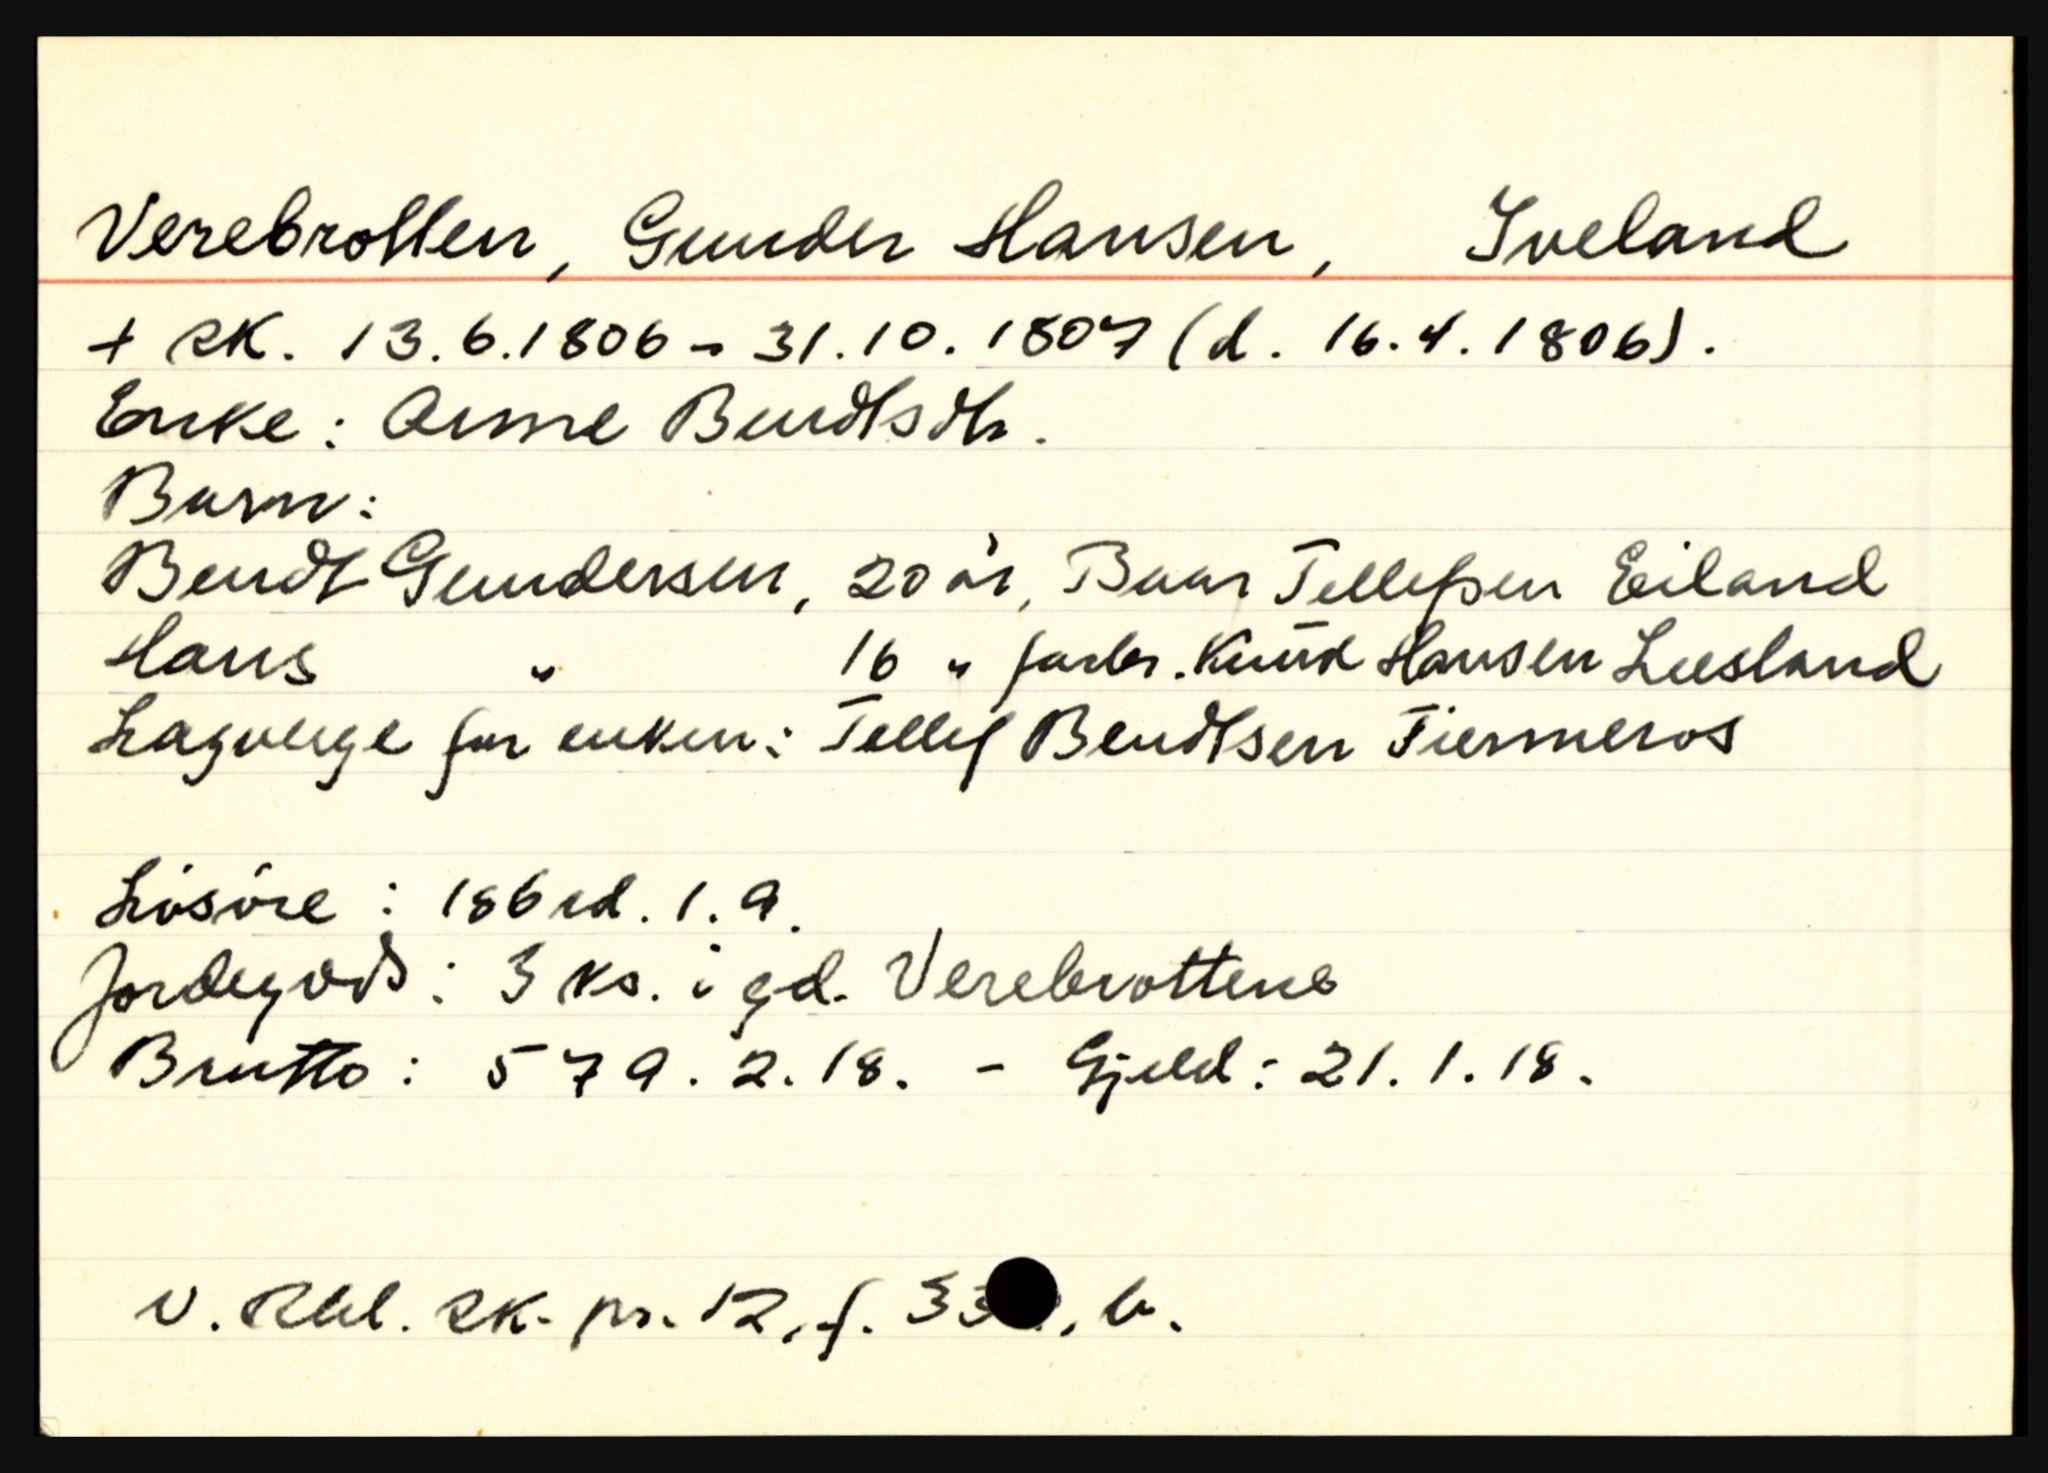 Verebrotten, Gunder Hansen, Iveland
+ sk. 13.6.1806 - 31.10.1807 (d. 16.4.1806).
Enke: Anne Bendtsdtr.
Barn:
Bendt Gundersen, 20 år, Baar Tellefsen Eiland
Hans " 16 " farbr. Knud Hansen Luesland
Lagverge for enken: Tellef Bendtsen Fiermeros
Lösöre: 186 rd. 1. 9.
Jordegods: 3 ks. i gd. Verebrottene
Brutto: 579. 2. 18. - Gjeld: 21. 1. 18.
N. Rbl. sk. pr. 12, f. 33 , b.